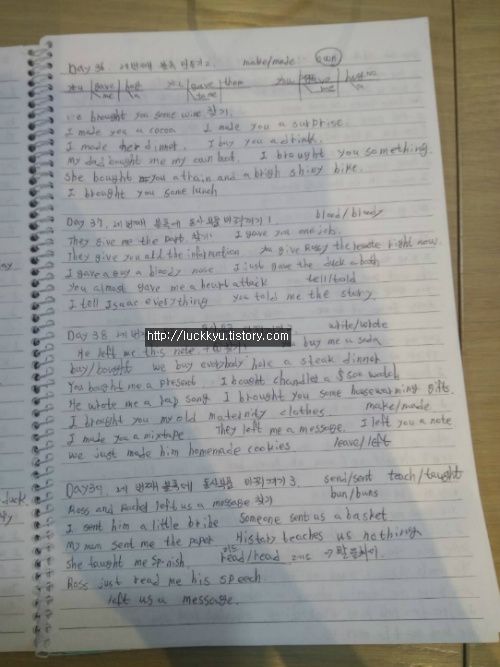 Day 36 세 번째 블록 make/made
gave
me
gave
them
I've brought you some wine 찾기.
I made you a cocoa I made you a surprise.
I made her dinner. I buy you a drink.
My dad bought me my own boat. I brought you something.
She bought you a train and a brigh shiny bike.
I brought you some lunch
Day 37. 세 번째 블록에 동사 바꾸기 1. blood/bloody
They give me the part 찾기 I gave you one job.
They give you all the information give Russ the remote right now.
I gave a guy a bloody nose I just gave the duck a bath
You almost gave me a heart attack tell/told
I tell Isaac everything you told me the story.
Day 38 세 번 write/wrote
http://luckkyu.tistory.com
He left me this note buy me a soda
buy/bought we buy everybody here a steak dinner
You bought me a present. I bought chandler a $500 watch
He wrote me a rap song I brought you some housewarming gifts.
I brought you my old maternity clothes make/made
I made you a mixtape They left me a message. I left you a note
we just made him homemade cookies leave/left
Day 39. 세 번째 블록에 동사 바꾸기 3. send/sent teach/taught
Ross and Rachel left us a message 찾기 bun/buns
I sent him a little bribe Someone sent us a basket
My mum sent me the paper History teaches us nothing
She taught me Sp-nish. read/read
Ross just read me his speech
left us a message.
duck